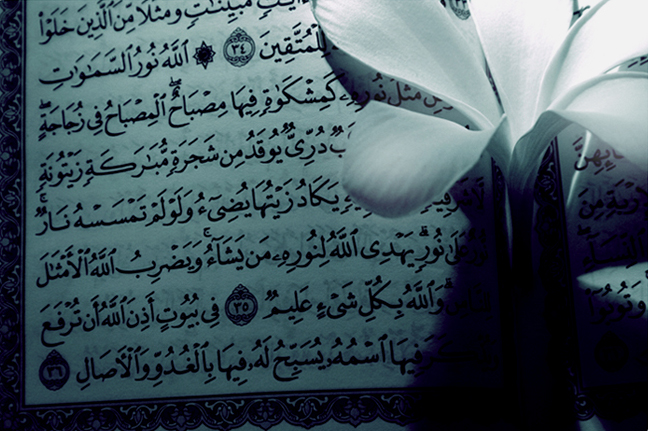 مُّبَيِّنَـٰتٍ وَمَثَلًا مِّنَ ٱلَّذِينَ خَلَوْا۟
لِّلْمُتَّقِينَ ٣٤ ۞ ٱللَّهُ نُورُ ٱلسَّمَـٰوَٰتِ
مَثَلُ نُورِهِۦ كَمِشْكَوٰةٍ فِيهَا مِصْبَاحٌ ۖ ٱلْمِصْبَاحُ فِى زُجَاجَةٍ ۖ
دُرِّىٌّ يُوقَدُ مِن شَجَرَةٍ مُّبَـٰرَكَةٍ زَيْتُونَةٍ
يَكَادُ زَيْتُهَا يُضِىٓءُ وَلَوْ لَمْ تَمْسَسْهُ نَارٌ ۚ
عَلَىٰ نُورٍ ۗ يَهْدِى ٱللَّهُ لِنُورِهِۦ مَن يَشَآءُ ۚ وَيَضْرِبُ ٱللَّهُ ٱلْأَمْثَـٰلَ
وَٱللَّهُ بِكُلِّ شَىْءٍ عَلِيمٌ ٣٥ فِى بُيُوتٍ أَذِنَ ٱللَّهُ أَن تُرْفَعَ
فِيهَا ٱسْمُهُۥ يُسَبِّحُ لَهُۥ فِيهَا بِٱلْغُدُوِّ وَٱلْـَٔاصَالِ ٣٦
مِنَ
وَتُوبُوٓا۟